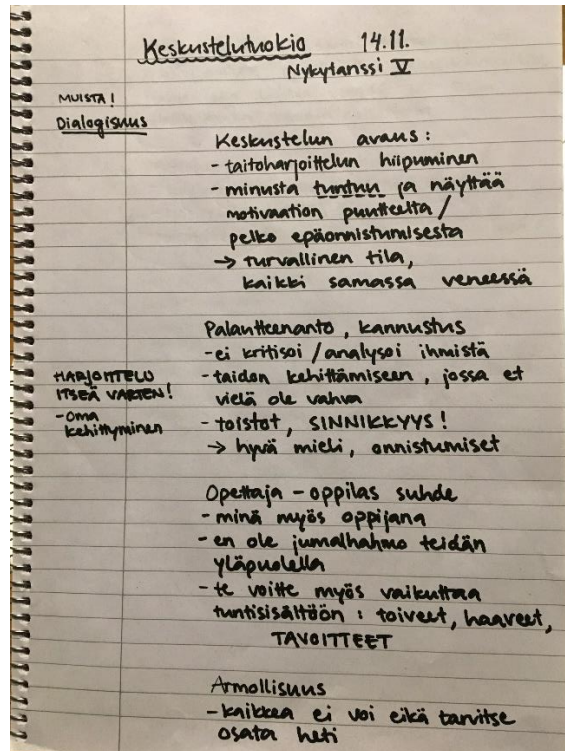 Keskustelutuokio 14.11.
Nykytanssi V
MUISTA!
Dialogisuus
Keskustelun avaus:
- taitoharjoittelun hiipuminen
- minusta tuntuu ja näyttää
motivaation puutteelta /
pelko epäonnistumisesta
→ turvallinen tila,
kaikki samassa veneessä
Palautteenanto, kannustus
- ei kritisoi / analysoi ihmistä
HARJOITTELU
ITSEÄ VARTEN!
- oma
kehittyminen
- taidon kehittämiseen, jossa et
vielä ole vahva
- toistot, SINNIKKYYS!
→ hyvä mieli, onnistumiset
Opettaja - oppilas suhde
- minä myös oppijana
- en ole jumalhahmo teidän
yläpuolella
- te voitte myös vaikuttaa
tuntisisältöön: toiveet, haaveet,
TAVOITTEET
Armollisuus
- kaikkea ei voi eikä tarvitse
osata heti